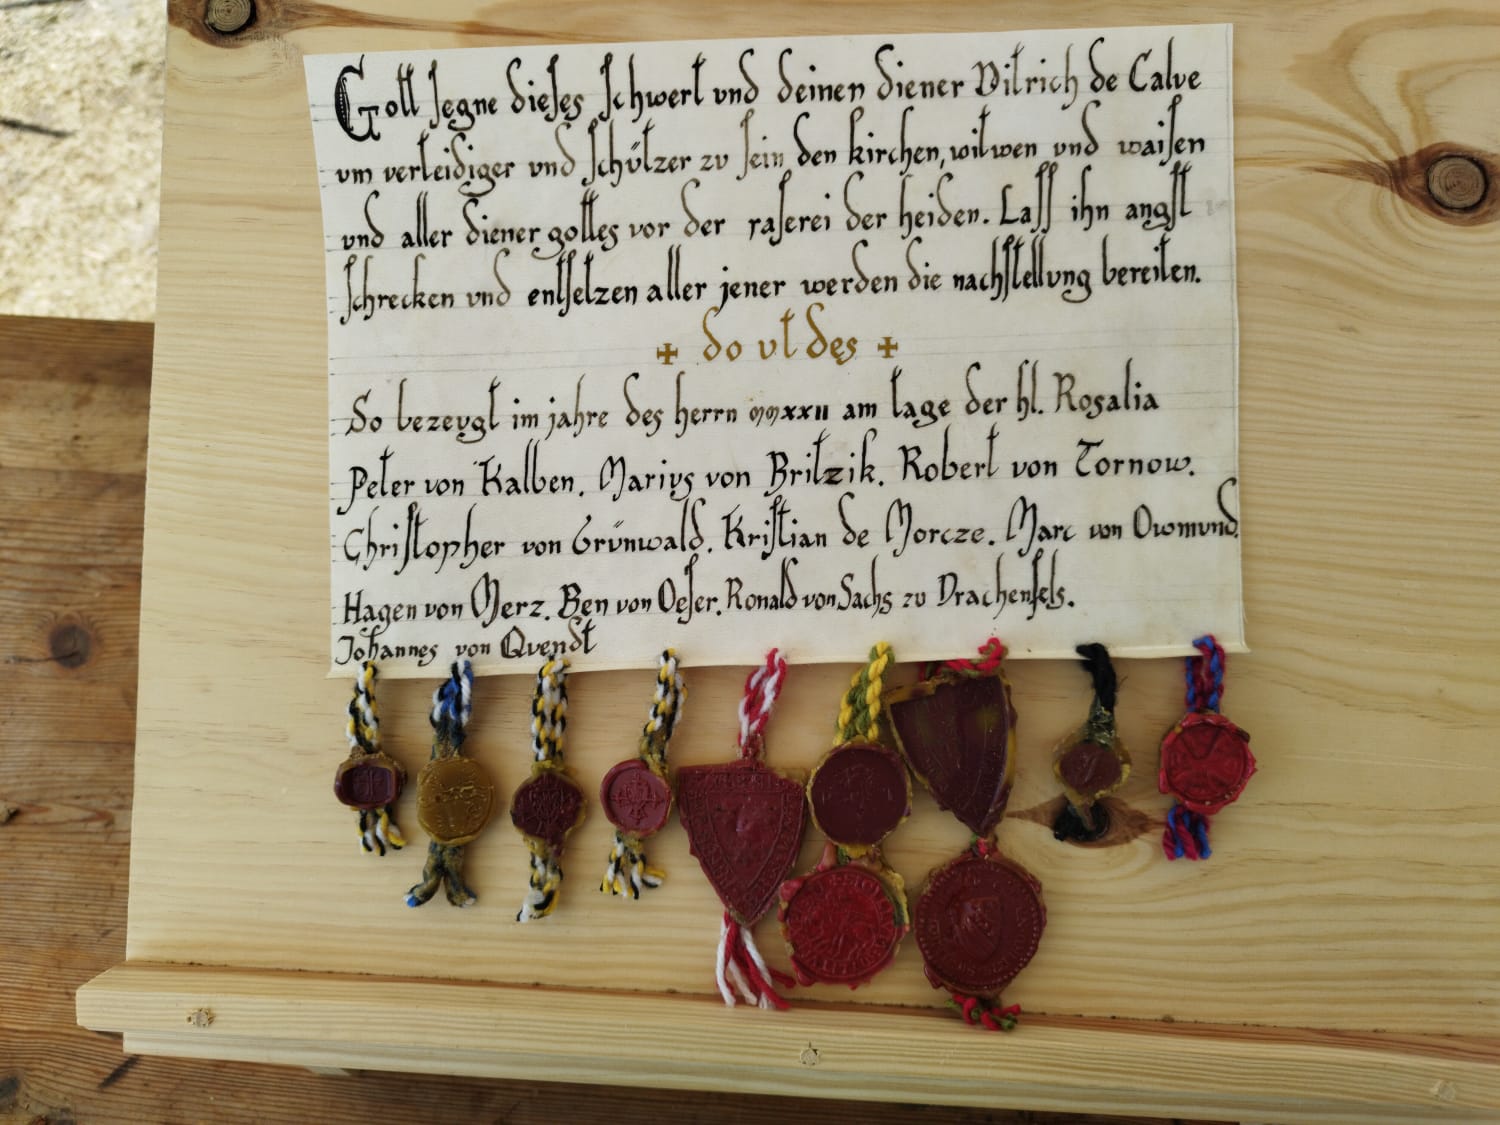 Gott segne dieses schwert vnd deinen diener Ditrich de Calve
vm verteidiger vnd schützer zv sein den kirchen, witwen vnd waisen
vnd aller diener gottes vor der raserei der heiden. Lass ihn angst
schrecken vnd entsetzen aller jener werden die nachstellvng bereiten.
✠ do vt des ✠
So bezevgt im jahre des herrn MMXXII am tage der hl. Rosalia
Peter von Kalben. Marivs von Britzik. Robert von Tornow.
Christopher von Grünwald. Kristian de Morcze. Marc von Owmvnd.
Hagen von Merz. Ben von Oeser. Ronald von Sachs zv Drachenfels.
Johannes von Qvendt